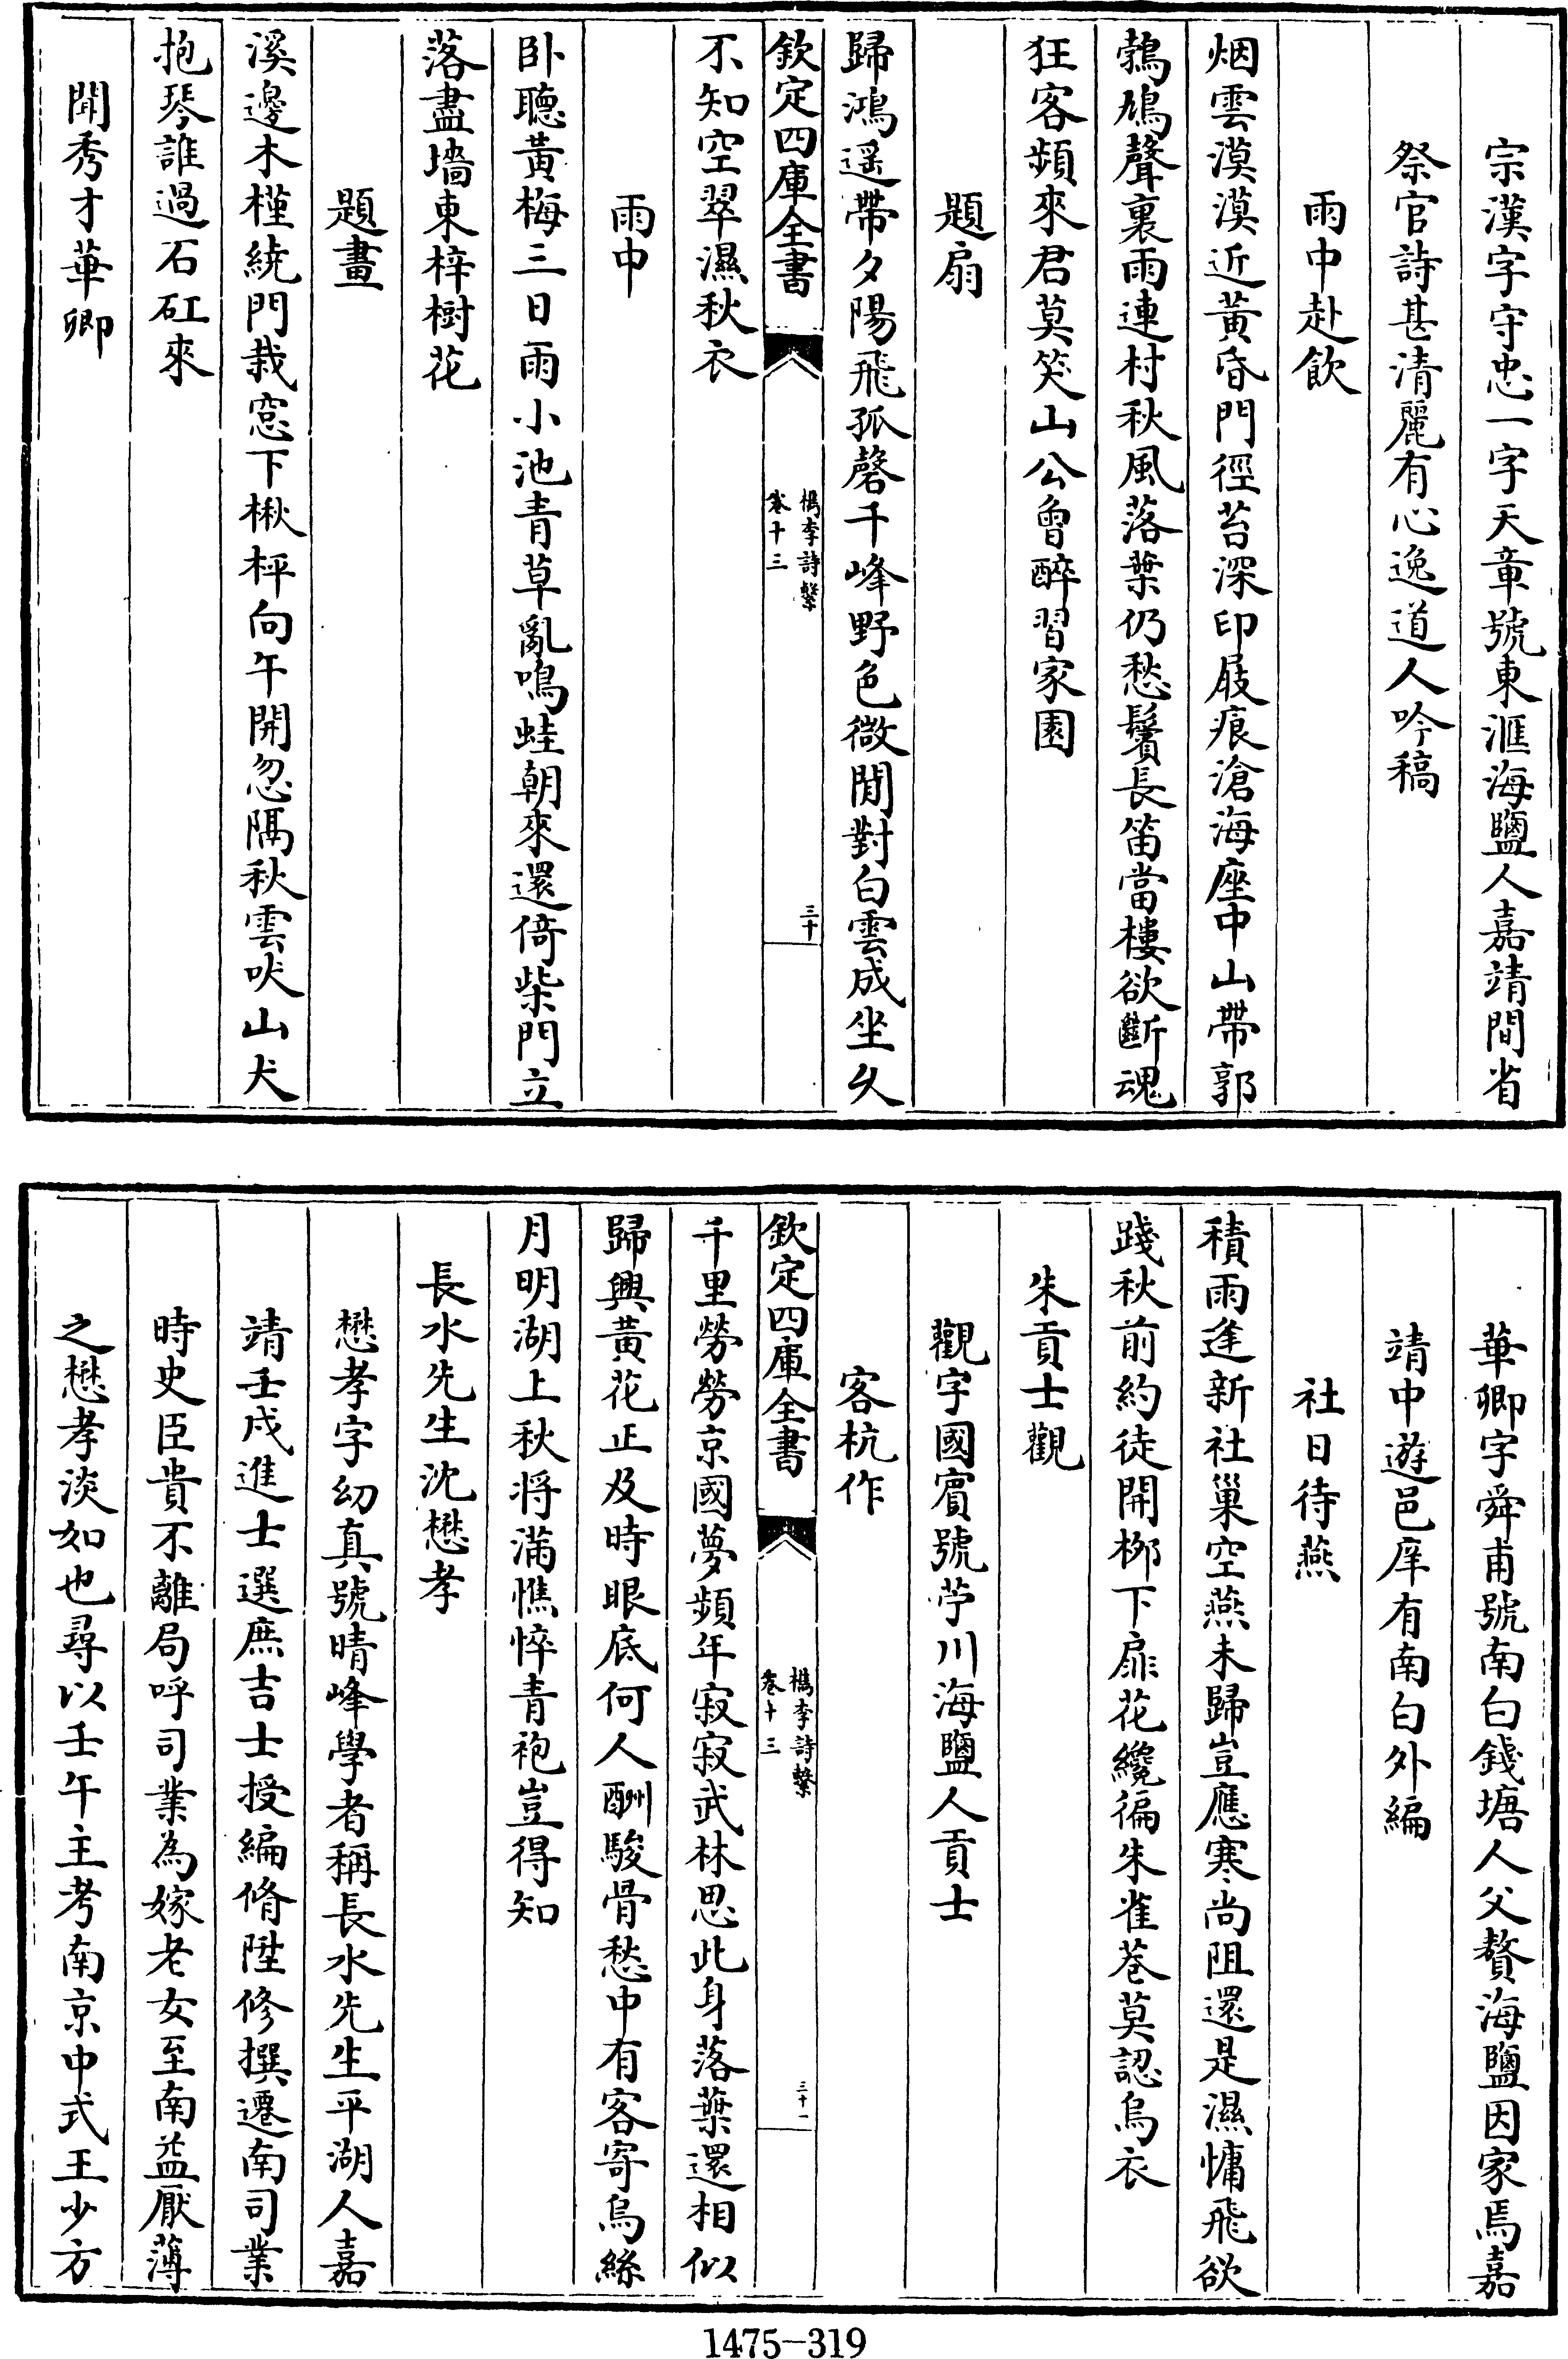 宗漢字守忠一字天章號東滙海鹽人嘉靖間省
祭官詩甚清麗有心逸道人吟稿
雨中赴飲
烟雲漠漠近黃昏門徑苔深印屐痕滄海座中山帶郭
鵓鳩聲裏雨連村秋風落葉仍愁鬢長笛當樓欲斷魂
狂客頻來君莫笑山公曾醉習家園
題扇
歸鴻遥帶夕陽飛孤磬千峰野色微閒對白雲成坐久
欽定四庫全書
檇李詩繫
卷十三
三十
不知空翠濕秋衣
雨中
卧聽黃梅三日雨小池青草亂鳴蛙朝來還倚柴門立
落盡墻東梓樹花
題畫
溪邊木槿繞門栽窓下楸枰向午開忽隔秋雲吠山犬
抱琴誰過石矼來
聞秀才華卿
華卿字舜甫號南白錢塘人父贅海鹽因家焉嘉
靖中遊邑庠有南白外編
社日待燕
積雨逢新社巢空燕未歸豈應寒尚阻還是濕慵飛欲
踐秋前約徒開栁下扉花纔徧朱雀巷莫認烏衣
朱貢士觀
觀字國賓號苧川海鹽人貢士
客杭作
欽定四庫全書
檇李詩繫
卷十三
三十一
千里勞勞京國夢頻年寂寂武林思此身落葉還相似
歸興黃花正及時眼底何人酬駿骨愁中有客寄烏絲
月明湖上秋將滿憔悴青袍豈得知
長水先生沈懋孝
懋孝字幼真號晴峰學者稱長水先生平湖人嘉
靖壬戌進士選庶吉士授編脩陞修撰遷南司業
時史臣貴不離局呼司業為嫁老女至南益厭薄
之懋孝淡如也尋以壬午主考南京中式王少方
1475-319